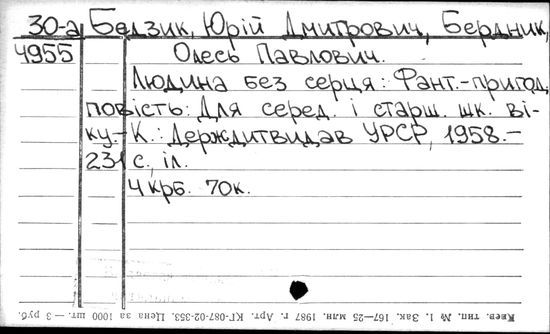 30-а Бедзик, Юрій Дмитрович, Бердник,
4955 Олесь Павлович.
Людина без серця: Фант.-пригод.
повість: Для серед. і старш. шк. ві-
ку.- К.: Держдитвидав УРСР, 1958.-
231 с., іл.
4 крб. 70к.
Киев. тип. № 1. Зак. 167—25 млн. 1987 г. Арт. КГ-087-02-353. Цена за 1000 шт. — 3 руб.